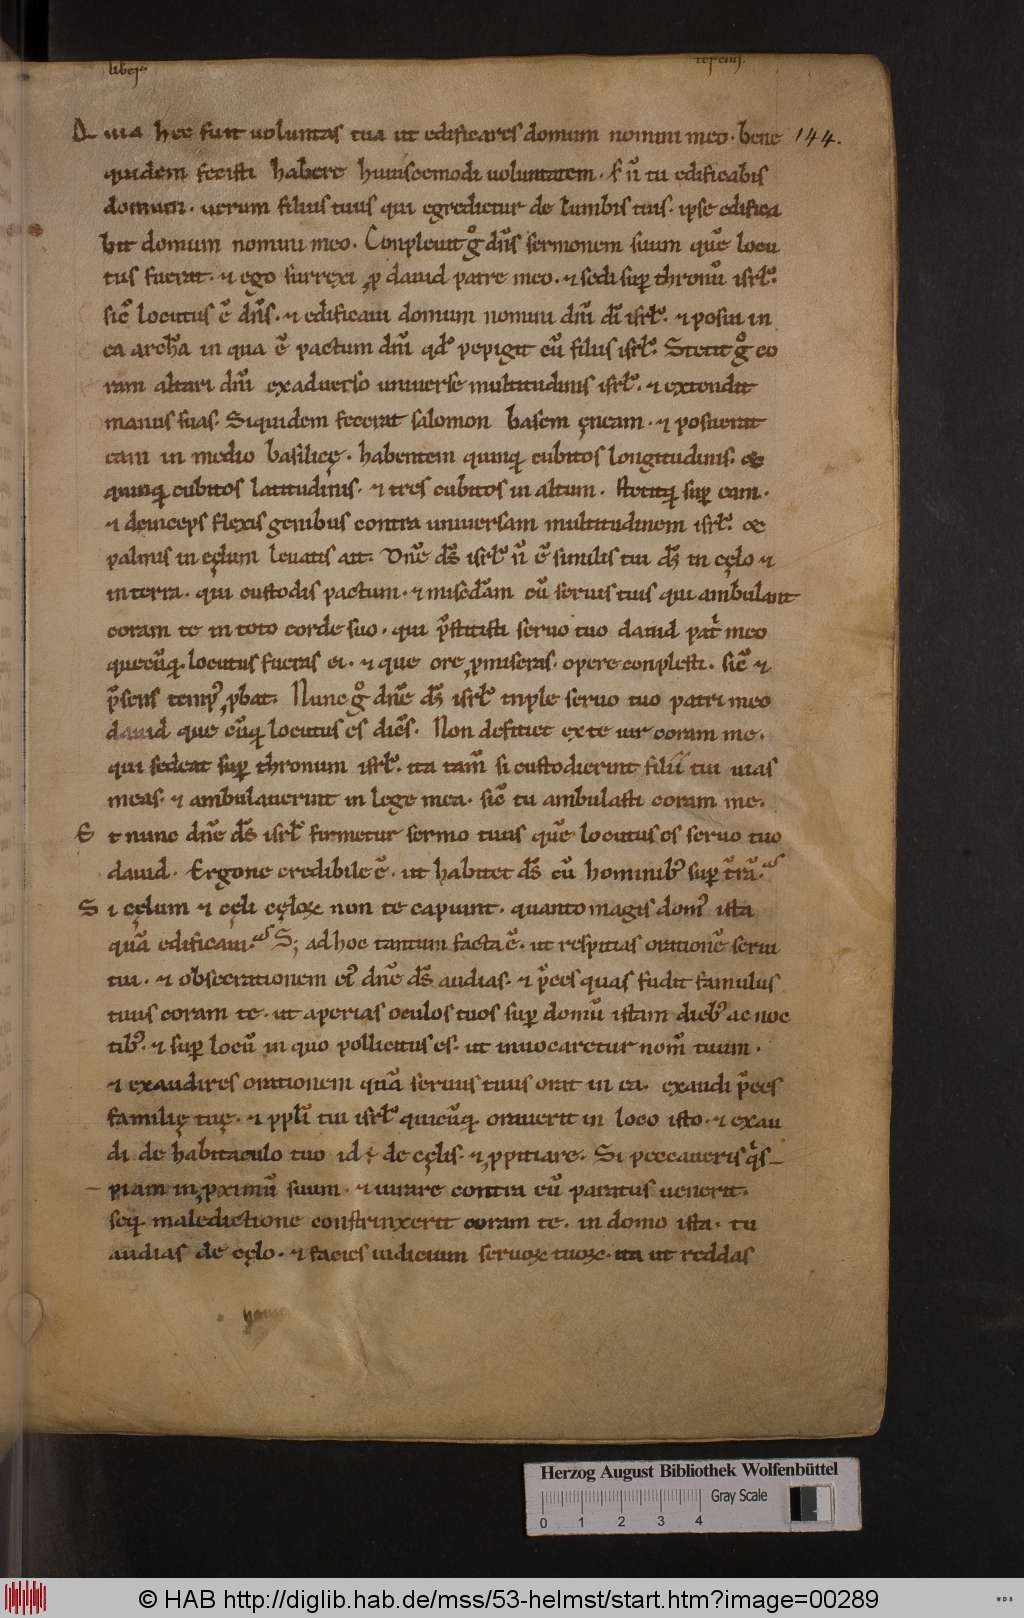 liber
144.
Quia hec fuit uoluntas tua ut edificares domum nomini meo. bene
quidem fecisti habere huiuscemodi uoluntatem. s; ñ tu edificabis
domum. uerum filius tuus qui egredietur de lumbis tuis. ipse edifica
bit domum nomini meo. Conpleuit gͦ dñs sermonem suum quē locu
tus fuerat. ⁊ ego surrexi ꝓ dauid patre meo. ⁊ sedi suꝑ thronū isrl̃.
sic̄ locutus ē dñs. ⁊ edificaui domum nomini dñi dī isrl̃. ⁊ posui in
ea archā in qua ē pactum dñi qd̃ pepigit cū filiis isrl̃. Stetit gͦ co
ram altari dñi exaduerso uniuerse multitudinis isrl̃. ⁊ extendit
manus suas. Siquidem fecerat salomon basem ęneam. ⁊ posuerat
eam in medio basilicę. habentem quinq; cubitos longitudinis. &
quinq; cubitos latitudinis. ⁊ tres cubitos in altum. stetitq; suꝑ eam.
⁊ deinceps flexis genibus contra uniuersam multitudinem isrl̃. &
palmis in cęlum leuatis ait. Dñe ds̃ isrl̃ ñ ē similis tui ds̃ in cęlo ⁊
in terra. qui custodis pactum. ⁊ misedām cū seruis tuis qui ambulant
coram te in toto corde suo. qui p̃stitisti seruo tuo dauid pat̃ meo
quecūq; locutus fueras ei. ⁊ que ore ꝓmiseras. opere conplesti. sic̄ ⁊
p̃sens temp⁹ ꝓbat. Nunc gͦ dñe ds̃ isrl̃ imple seruo tuo patri meo
dauid que cūq; locutus es dicēs. Non defitiet ex te uir coram me.
qui sedeat suꝑ thronum isrl̃. ita tam̄ si custodierint filii tui uias
meas. ⁊ ambulauerint in lege mea. sic̄ tu ambulasti coram me.
Et nunc dñe ds̃ isrl̃ firmetur sermo tuus quē locutus es seruo tuo
dauid. Ergone credibile ē. ut habitet ds̃ cū hominib⁹ suꝑ t̃rā.
Si cęlum ⁊ cęli cęloꝝ non te capiunt. quanto magis dom⁹ ista
quā edificaui. S; ad hoc tantum facta ē. ut respitias orationē serui
tui. ⁊ obsecrationem ei⁹ dñe ds̃ audias. ⁊ p̃ces quas fudit famulus
tuus coram te. ut aperias oculos tuos suꝑ domū istam dieb⁹ ac noc
tib⁹. ⁊ suꝑ locū in quo pollicitus es. ut inuocaretur nom̄ tuum.
⁊ exaudires orationem quā seruus tuus orat in ea. exaudi p̃ces
familię tuę. ⁊ ppl̃i tui isrl̃ quicūq; orauerit in loco isto. ⁊ exau
di de habitaculo tuo id ÷ de cęlis. ⁊ ꝓpitiare. Si peccaueris q̃s
piam in ꝓximū suum. ⁊ iurare contra eū paratus uenerit.
seq; maledictione constrinxerit coram te. in domo ista. tu
audias de cęlo. ⁊ facies iudicium seruoꝝ tuoꝝ. ita ut reddas
Herzog August Bibliothek Wolfenbüttel
Gray Scale
0 1 2 3 4
© HAB http://diglib.hab.de/mss/53-helmst/start.htm?image=00289